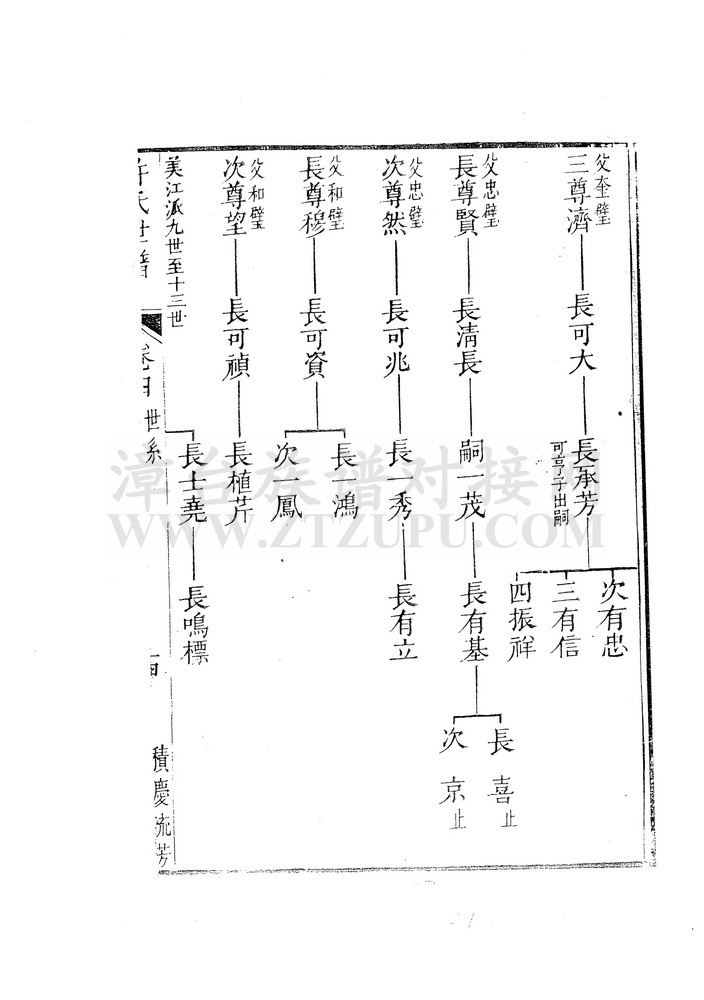 父奎璧
三尊濟
長可大
長承芳
可亨子出嗣
次有忠
三有信
四振祥
父忠璧
長尊賢
長清長
嗣一茂
長有基
長喜止
次京止
父忠璧
次尊然
長可兆
長一秀
長有立
父和璧
長尊穆
長可資
長一鴻
次一鳳
父和璧
次尊望
長可禎
長植芹
長士堯
長鳴標
美江派九世至十三世
許氏世譜
世系
積慶流芳
漳台族谱对接
WWW.ZTZUPU.COM